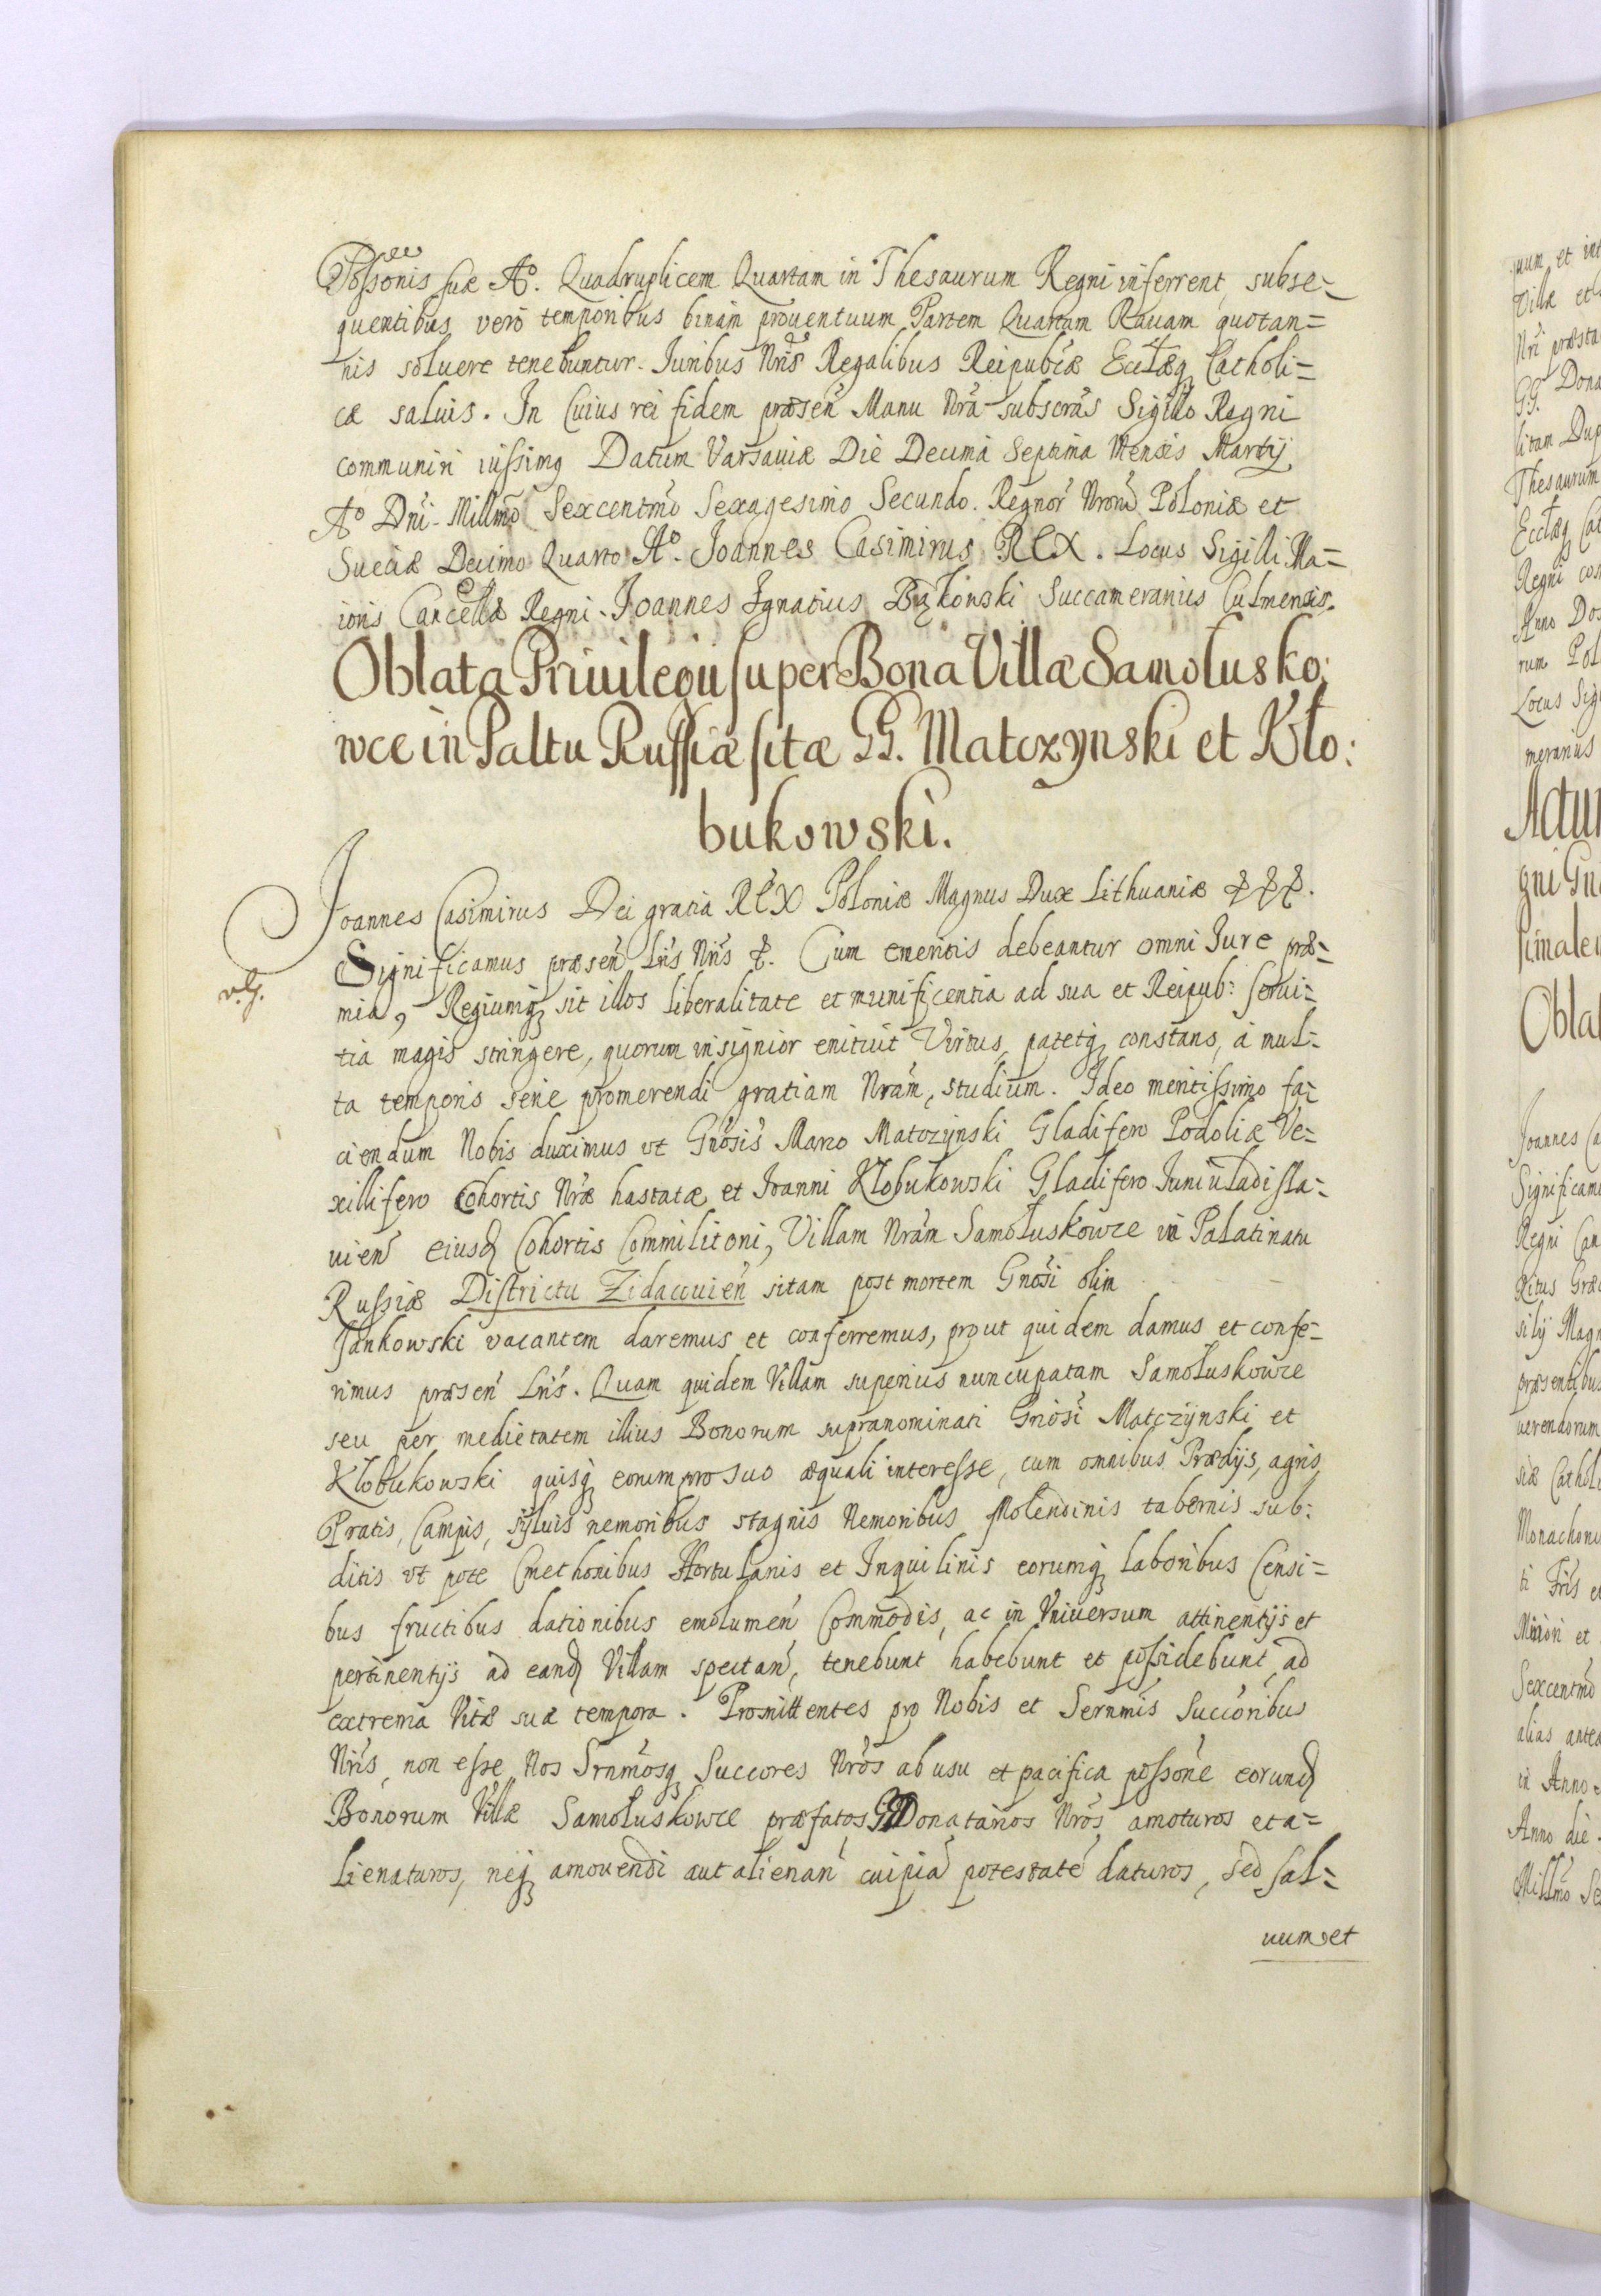 Possonis suæ Aº. Quadruplicem Quartam in Thesaurum Regni inferrent, subse=
quentibus verò temporibus binam prouentuum Partem Quartam Rauam quotan=
nis soluere tenebuntur. Iuribus Nris Regalibus Reipubcæ Ecclæq Catholi=
cæ saluis. In Cuius rei fidem præsen Manu Nra subscras Sigillo Regni
communiri iussimq Datum Varsauiæ Die Decima Septima Mensis Martij
Aº Dni. Millmo Sexcentmo Sexagesimo Secundo. Regnor Nroru Poloniæ et
Sueciæ Decimo Quarto Aº. Joannes Casimirus REX. Locus Sigilli Ma=
ioris Cancellæ Regni. Joannes Ignatius Bąkowski Succamerarius Culmensis.
Oblata Priuilegii super Bona Villæ Samołusko:
wce in Paltu Russiæ sitæ GG. Matczynski et Kło:
bukowski.
Joannes Casimirus Dei gratia REX Poloniæ Magnus Dux Lithuaniæ &&&.
Significamus præsen Lris Nris &. Cum emeritis debeantur omni Iure præ=
v.G.
mia, Regiumq sit illos liberalitate et munificentia ad sua et Reipub: serui=
tia magis stringere, quorum insignior enituit Virtus, patetq constans, à mul=
ta temporis serie promerendi gratiam Nram, studium. Ideo meritissimo fa=
ciendum Nobis duximus vt Gnosis Marco Matczynski Gladifero Podoliæ Ve=
xillifero Cohortis Nræ hastatæ et Ioanni Kłobukowski Gladifero Iuniuladisla=
uien eiusd Cohortis Commilitoni, Villam Nram Samołuskowce in Palatinatu
Russiæ Districtu Zidacouien sitam post mortem Gnosi olim
Jankowski vacantem daremus et conferremus, prout quidem damus et confe=
rimus præsen Lris. Quam quidem Villam superius nuncupatam Samołuskowce
seu per medietatem illius Bonorum supranominati Gnosi Matczynski et
Kłobukowski quisq eorum pro suo æquali interesse, cum omnibus Prædijs, agris,
Pratis, Campis, syluis nemoribus stagnis Nemoribus Molendinis tabernis sub:
ditis vt pote Cmethonibus Hortulanis et Inquilinis eorumq laboribus Censi=
bus fructibus dationibus emolumen Commodis, ac in Vniuersum attinentijs et
pertinentijs ad eand Villam spectan, tenebunt habebunt et possidebunt ad
extrema Vitæ suæ tempora. Promittentes pro Nobis et Sernmis Succoribus
Nris, non esse Nos Srnmosq Succores Nros ab usu et pacifica possone eorund
Bonorum Villæ Samołuskowce præfatos GG Donatarios Nros amoturos et a=
lienaturos, neq amouendi aut alienan cuipia potestate daturos, sed sal=
uum et